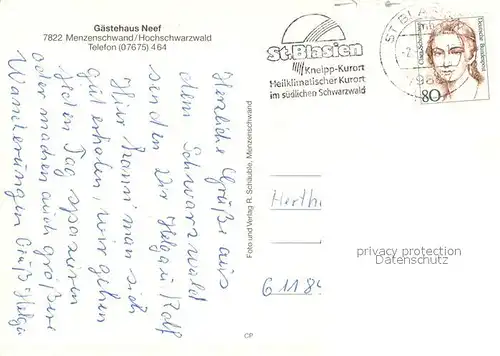 Gästehaus Neef
7822 Menzenschwand/Hochschwarzwald
Telefon (07675) 464
Herzliche Grüße aus
dem Schwarzwald
senden Dir Helga u Rolf
Hier kann man sich
gut erholen, wir gehen
jeden Tag spazieren
oder machen auch größere
Wanderungen Gruß Helga
Foto und Verlag R. Schäuble, Menzenschwand
CP
St.Blasien
Kneipp-Kurort
Heilklimatischer Kurort
im südlichen Schwarzwald
ST BLAS
80
Deutsche Bundespost
Herth
privacy protection
Datenschutz
6 1184